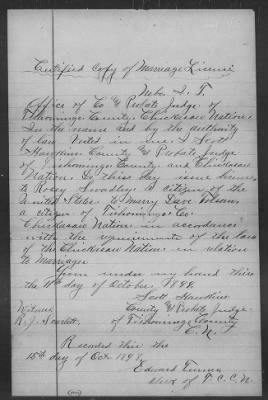 Certified Copy of Marriage License
Mebo I. T.
Office of Co & Probate Judge of
Tishomingo County, Chickasaw Nation.
In the name and by the authority
of law Vested in me. I Scott
Hawkins County & Probate Judge
of Tishomingo County and Chickasaw
Nation. Do this day issue license
to Rosey Swadley a citizen of the
United States to marry Dave Folsom
a citizen of Tishomingo Co.
Chickasaw Nation in accordance
with the requirements of the laws
of the Chickasaw Nation in relation
to Marriage.
Given under my hand this
the 11th day of October, 1898.
Scott Hawkins
Witness County & Probate Judge
R. J. Scarlett. of Tishomingo County
C. N.
Recorded this the
15th day of Oct 1898.
Edward
Clerk of T. C. C. N.